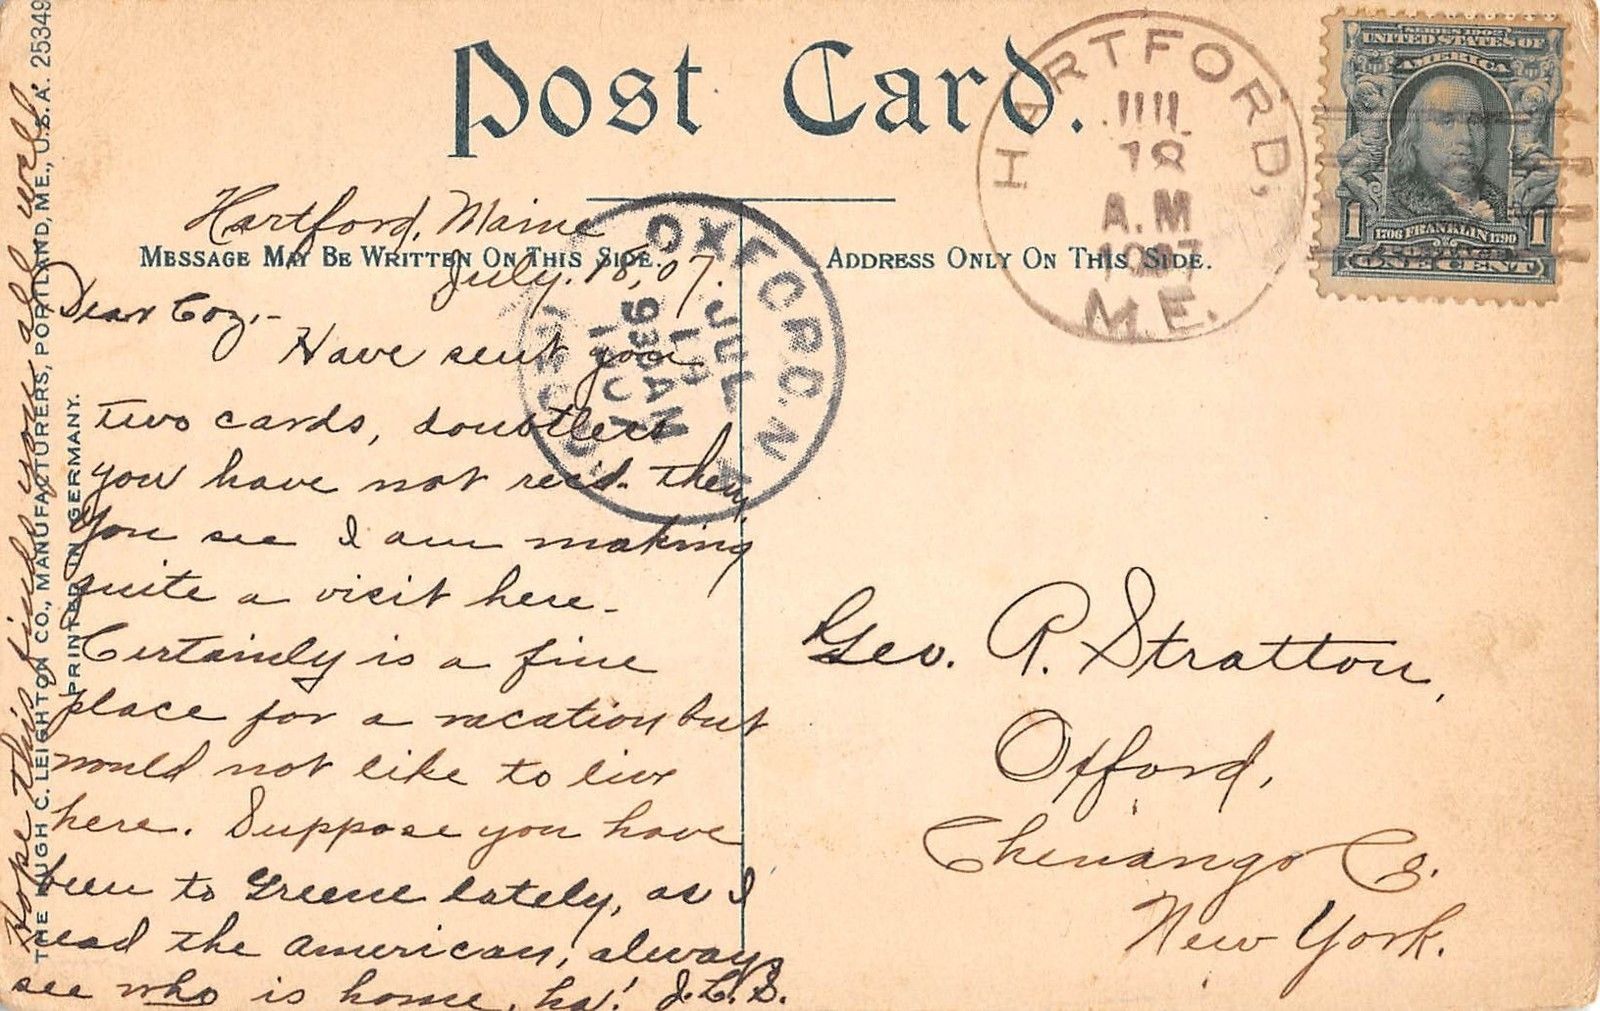 Post Card.
MESSAGE MAY BE WRITTEN ON THIS SIDE.
ADDRESS ONLY ON THIS SIDE.
HARTFORD,
JUL
18
A.M
1907
M.E.
SERIES 1902
UNITED STATES OF
AMERICA
1 1
1706 FRANKLIN 1790
ONE CENT
OXFORD, N
JUL
19
9 30 AM
Hartford, Maine
July. 18, 07.
Dear Coz,-
Have sent you
two cards, doubtless
you have not rec'd. them
You see I am making
quite a visit here -
Certainly is a fine
place for a vacation but
would not like to live
here. Suppose you have
been to Greene lately, as I
read the American, always
see who is home, ha! J.L.S.
Hope this finds you all well
THE HUGH C. LEIGHTON CO., MANUFACTURERS, PORTLAND, ME., U.S.A. 25349
PRINTED IN GERMANY.
Geo. R. Stratton,
Oxford,
Chenango Co.
New York.